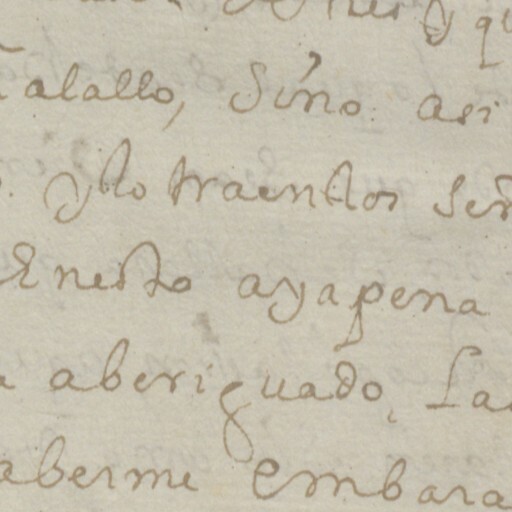 y qu
alallo, Sino asi
yllo traen los Señ
Enesto aya pena
a aberiguado, La
aberme embara